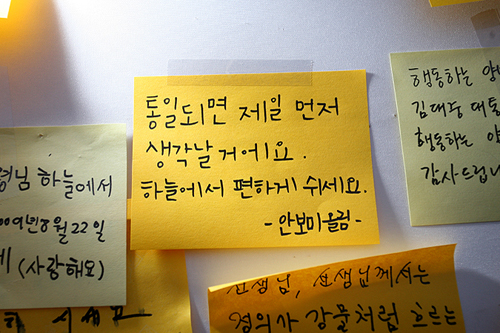 통일되면 제일 먼저
생각날 거에요.
하늘에서 편하게 쉬세요.
-안보미올림-
행동하는 양
김대중 대통
행동하는 양
감사드립니
령님 하늘에서
009년 8월 22일
(사랑해요)
선생님, 선생님께서는
정의사 강물처럼 흐르는